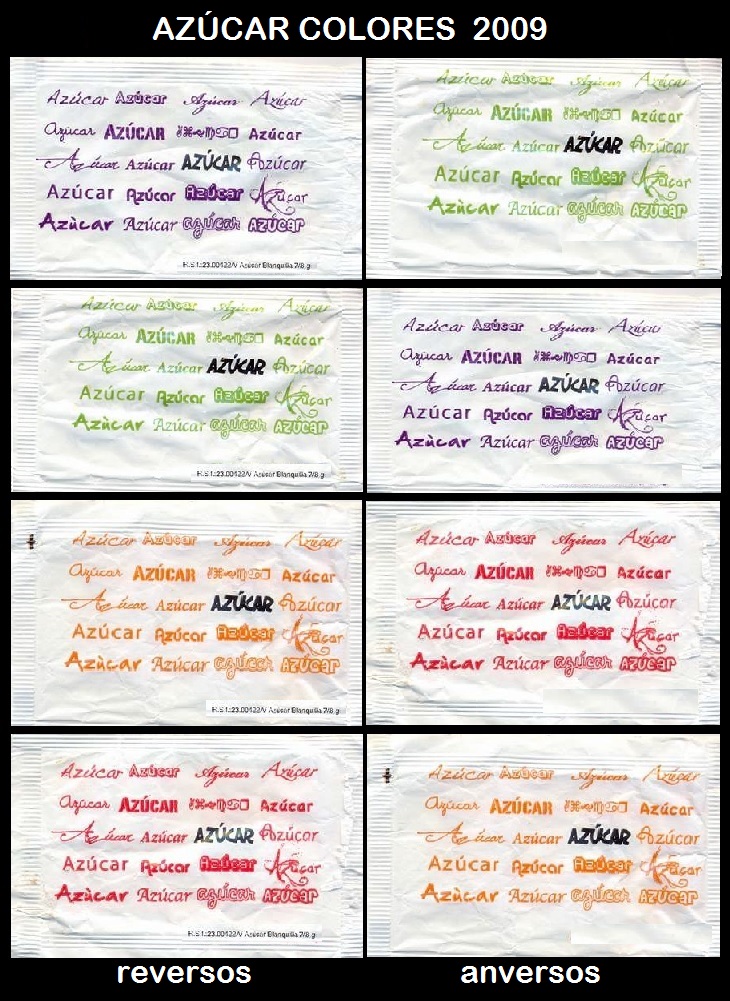 AZÚCAR COLORES 2009
Azúcar Azúcar Azúcar Azúcar
Azúcar AZÚCAR Azúcar
Azúcar Azúcar AZÚCAR Azúcar
Azúcar Azúcar Azúcar Azúcar
Azùcar Azúcar azúcar AZÚCAR
R.S.I.:23.00422/V Azúcar Blanquilla 7/8 g.
Azúcar Azúcar Azúcar Azúcar
Azúcar AZÚCAR Azúcar
Azúcar Azúcar AZÚCAR Azúcar
Azúcar Azúcar Azúcar Azúcar
Azùcar Azúcar azúcar AZÚCAR
Azúcar Azúcar Azúcar Azúcar
Azúcar AZÚCAR Azúcar
Azúcar Azúcar AZÚCAR Azúcar
Azúcar Azúcar Azúcar Azúcar
Azùcar Azúcar azúcar AZÚCAR
R.S.I.:23.00422/V Azúcar Blanquilla 7/8 g.
Azúcar Azúcar Azúcar Azúcar
Azúcar AZÚCAR Azúcar
Azúcar Azúcar AZÚCAR Azúcar
Azúcar Azúcar Azúcar Azúcar
Azùcar Azúcar azúcar AZÚCAR
Azúcar Azúcar Azúcar Azúcar
Azúcar AZÚCAR Azúcar
Azúcar Azúcar AZÚCAR Azúcar
Azúcar Azúcar Azúcar Azúcar
Azùcar Azúcar azúcar AZÚCAR
R.S.I.:23.00422/V Azúcar Blanquilla 7/8 g.
Azúcar Azúcar Azúcar Azúcar
Azúcar AZÚCAR Azúcar
Azúcar Azúcar AZÚCAR Azúcar
Azúcar Azúcar Azúcar Azúcar
Azùcar Azúcar azúcar AZÚCAR
Azúcar Azúcar Azúcar Azúcar
Azúcar AZÚCAR Azúcar
Azúcar Azúcar AZÚCAR Azúcar
Azúcar Azúcar Azúcar Azúcar
Azùcar Azúcar azúcar AZÚCAR
R.S.I.:23.00422/V Azúcar Blanquilla 7/8 g.
Azúcar Azúcar Azúcar Azúcar
Azúcar AZÚCAR Azúcar
Azúcar Azúcar AZÚCAR Azúcar
Azúcar Azúcar Azúcar Azúcar
Azùcar Azúcar azúcar AZÚCAR
reversos anversos